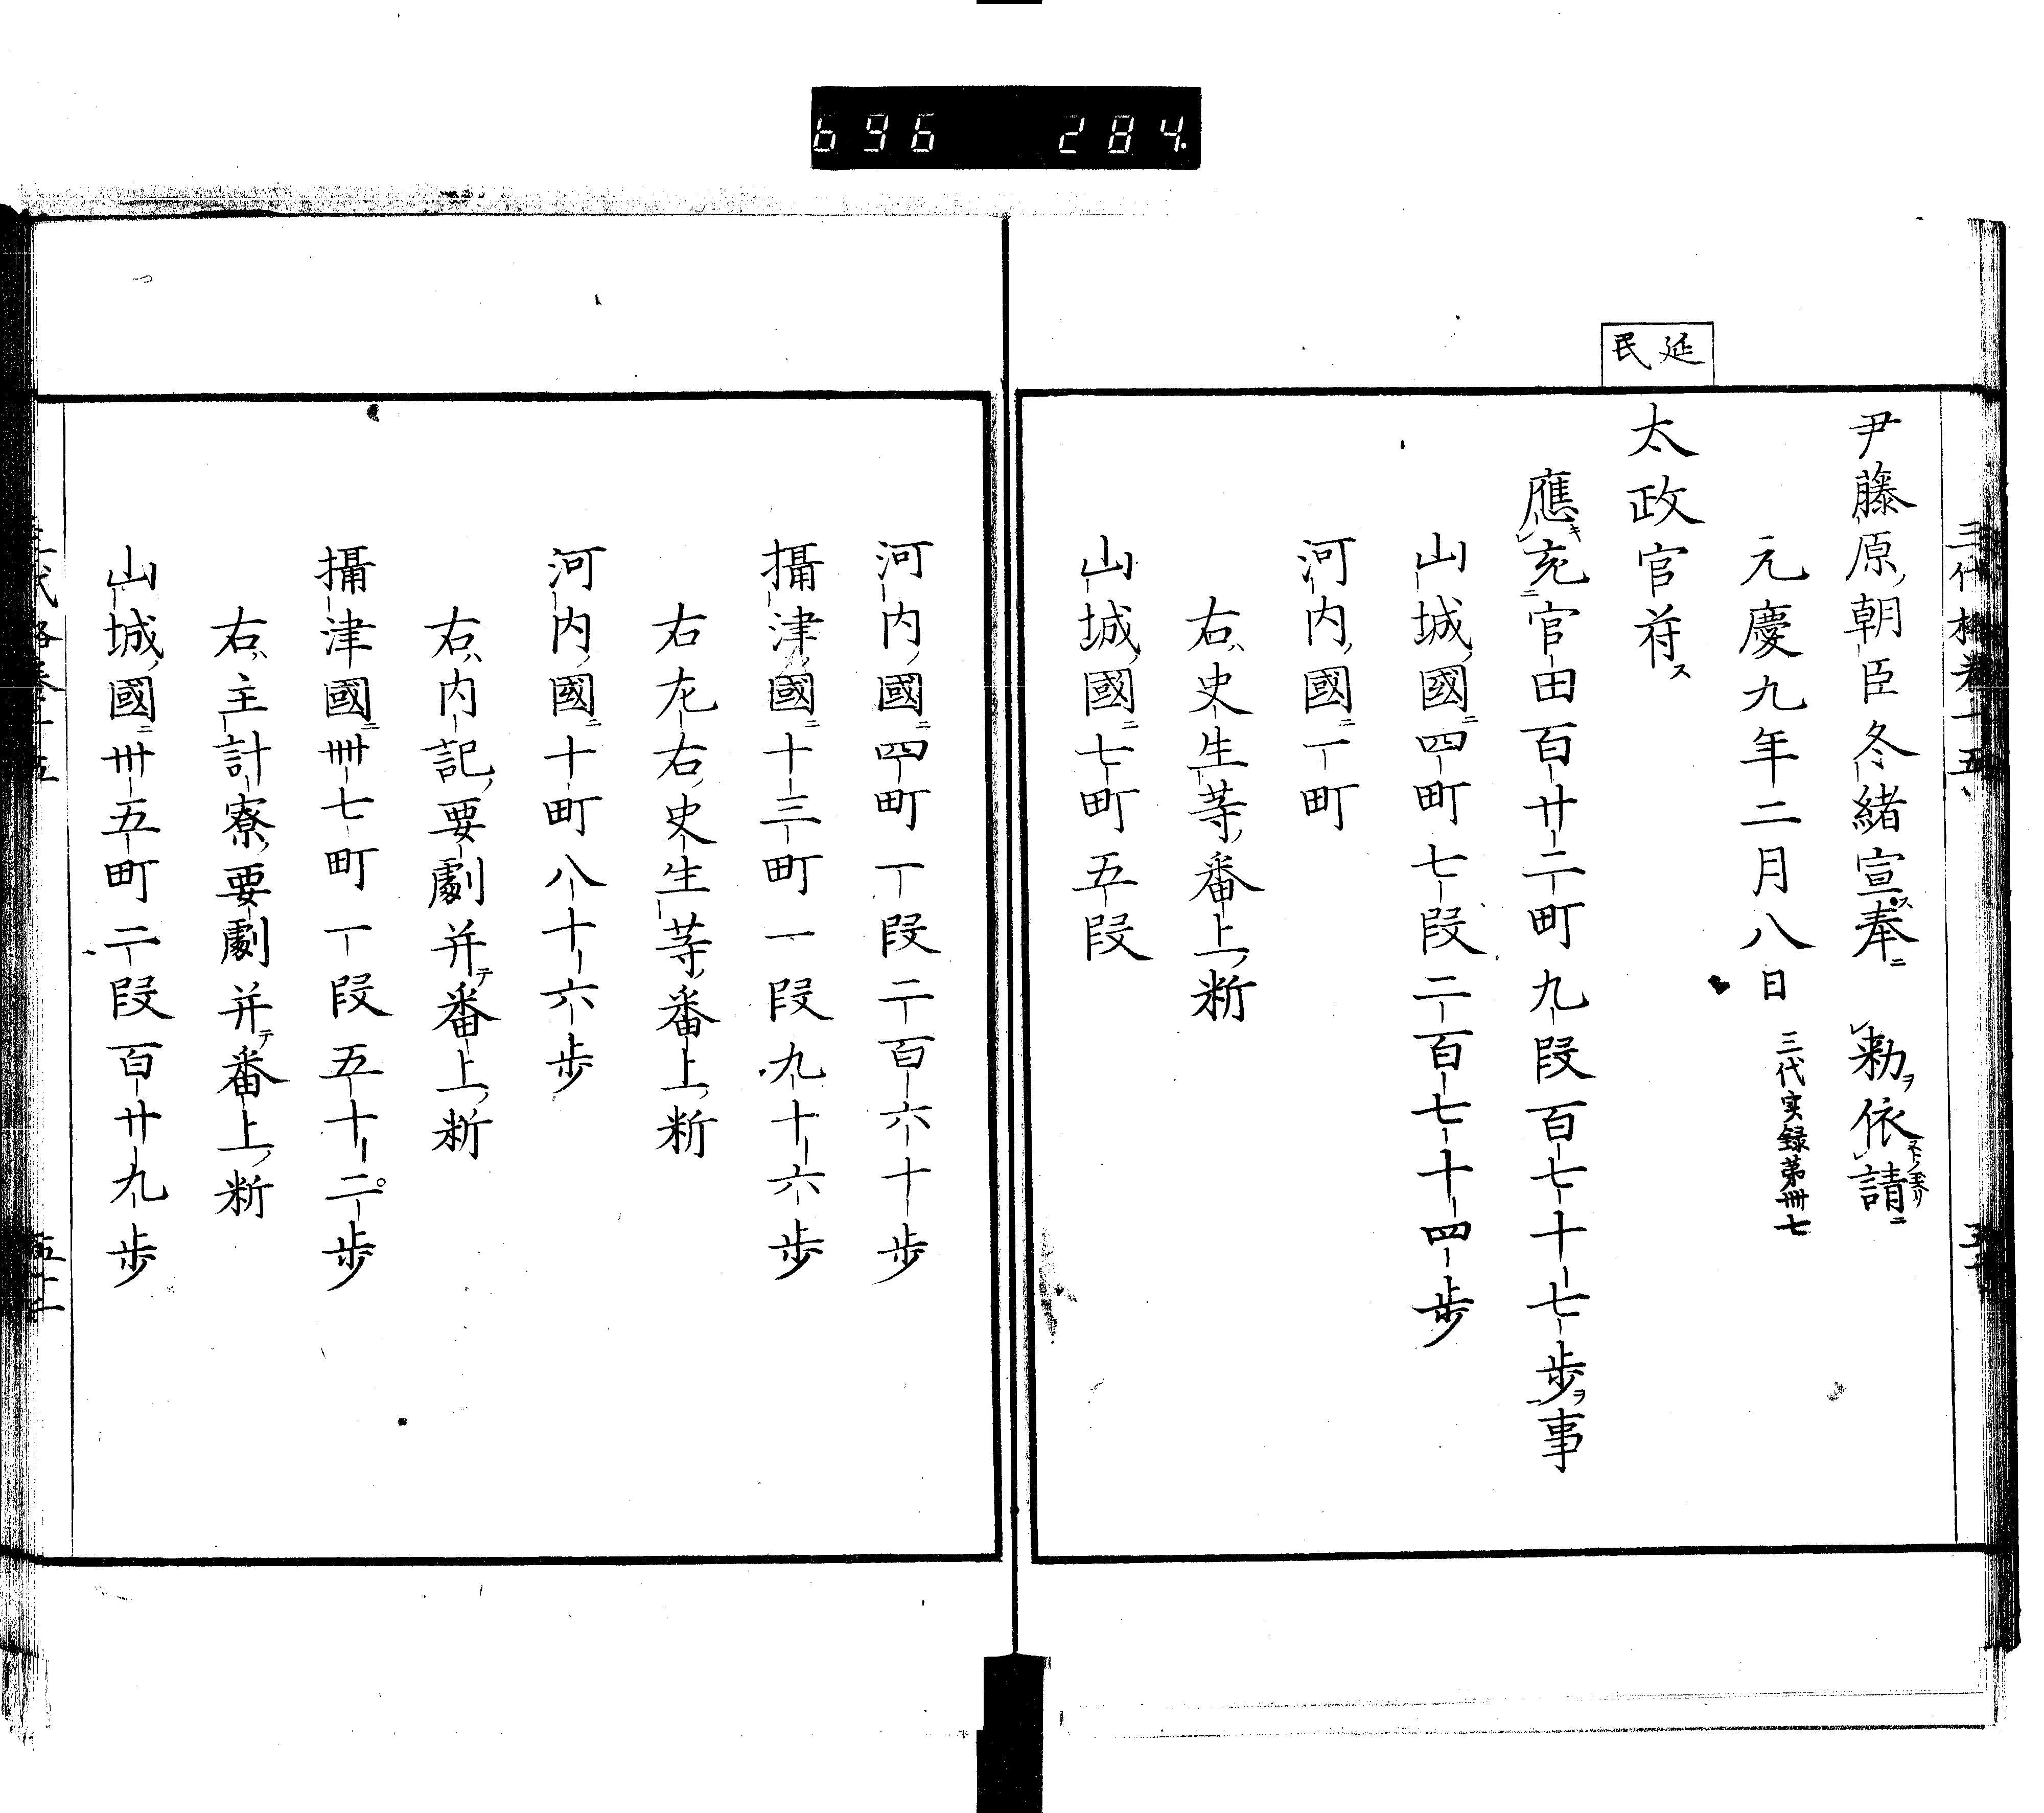 696 284
延民
尹藤原朝臣冬緒宣奉 勅依請
元慶九年二月八日 三代実録第卌七
太政官符ス
應充官田百廿二町九段百七十七歩ヲ事
山城國ニ四町七段二百七十四歩
河内國ニ一町
右史生等番上新
山城國ニ七町五段
河内國ニ四町一段二百六十歩
攝津國ニ十三町一段九十六歩
右左右史生等番上新
河内國ニ十町八十六歩
右内記要劇并テ番上新
攝津國ニ卌七町一段五十二歩
右主計寮要劇并テ番上新
山城國ニ卅五町二段百廿九歩